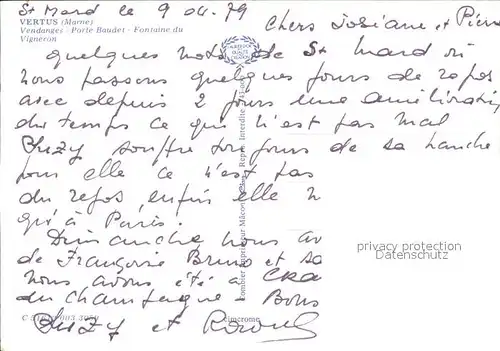 St Mard le 9 04. 79
VERTUS (Marne)
Vendanges - Porte Baudet - Fontaine du
Vigneron
Chers Josiane et Pierre
quelques mots de St Mard où
nous passons quelques jours de repos
avec depuis 2 jours une amélioration
du temps ce qui n'est pas mal
Suzy souffre toujours de sa hanche
pour elle ce n'est pas
du repos, enfin elle n
qu'à Paris.
Dimanche nous av
de Françoise Bruno et sa
nous avons été à
du champagne - Bons
Suzy et
Combier Imprimeur Mâcon
Repr. Interdite
cimcrome
privacy protection
Datenschutz